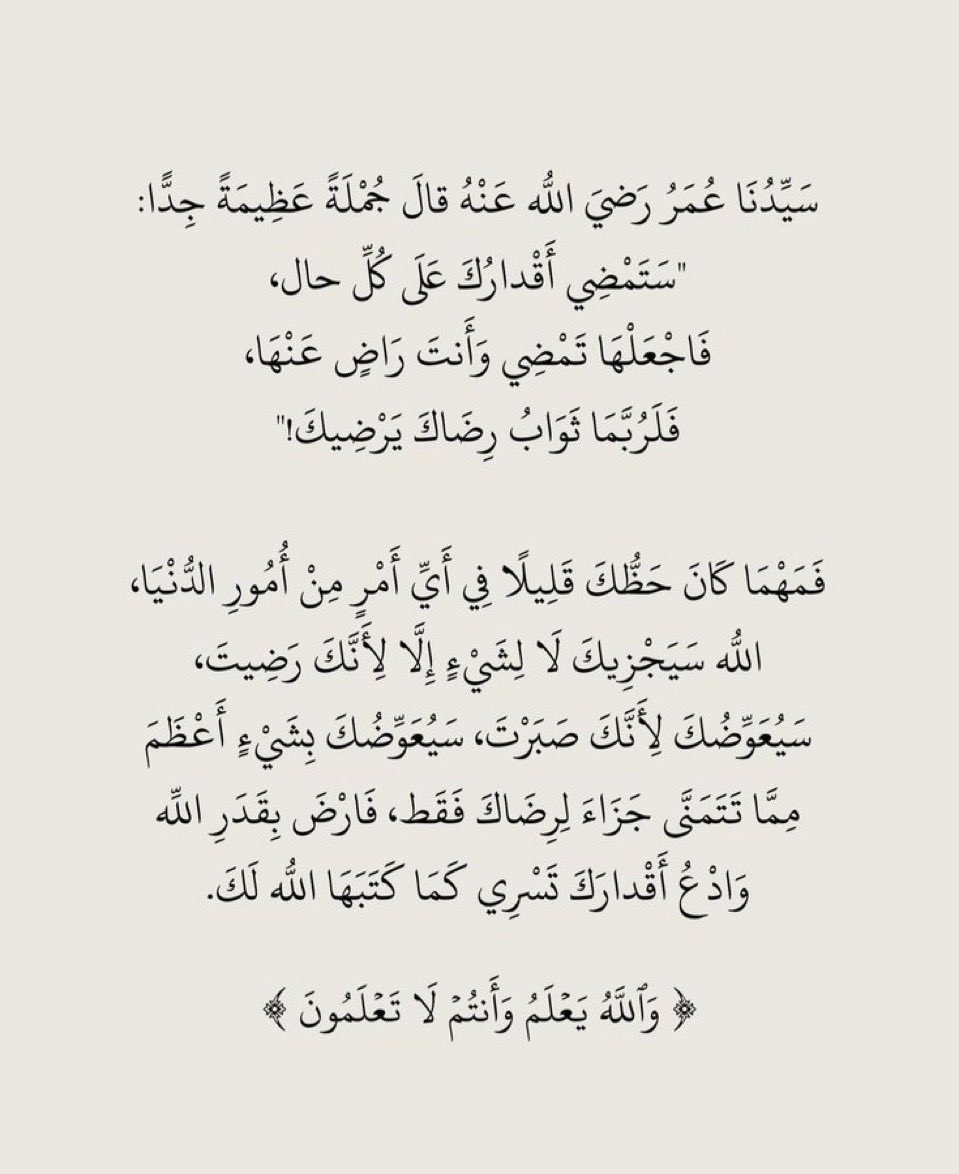 سَيِّدُنَا عُمَرُ رَضيَ الله عَنْهُ قالَ جُمْلَةً عَظِيمَةً جِدًّا:
"سَتَمْضِي أَقْدارُكَ عَلَى كُلِّ حال،
فَاجْعَلْهَا تَمْضِي وَأَنتَ رَاضٍ عَنْهَا،
فَلَرُبَّمَا ثَوَابُ رِضَاكَ يَرْضِيكَ!"
فَمَهْمَا كَانَ حَظُّكَ قَلِيلًا فِي أَيِّ أَمْرٍ مِنْ أُمُورِ الدُّنْيَا،
الله سَيَجْزِيكَ لَا لِشَيْءٍ إِلَّا لِأَنَّكَ رَضِيتَ،
سَيُعَوِّضُكَ لِأَنَّكَ صَبَرْتَ، سَيُعَوِّضُكَ بِشَيْءٍ أَعْظَمَ
مِمَّا تَتَمَنَّى جَزَاءَ لِرِضَاكَ فَقَط، فَارْضَ بِقَدَرِ اللَّه
وَادْعُ أَقْدارَكَ تَسْرِي كَمَا كَتَبَهَا الله لَكَ.
﴿ وَٱللَّهُ يَعۡلَمُ وَأَنتُمۡ لَا تَعۡلَمُونَ ﴾